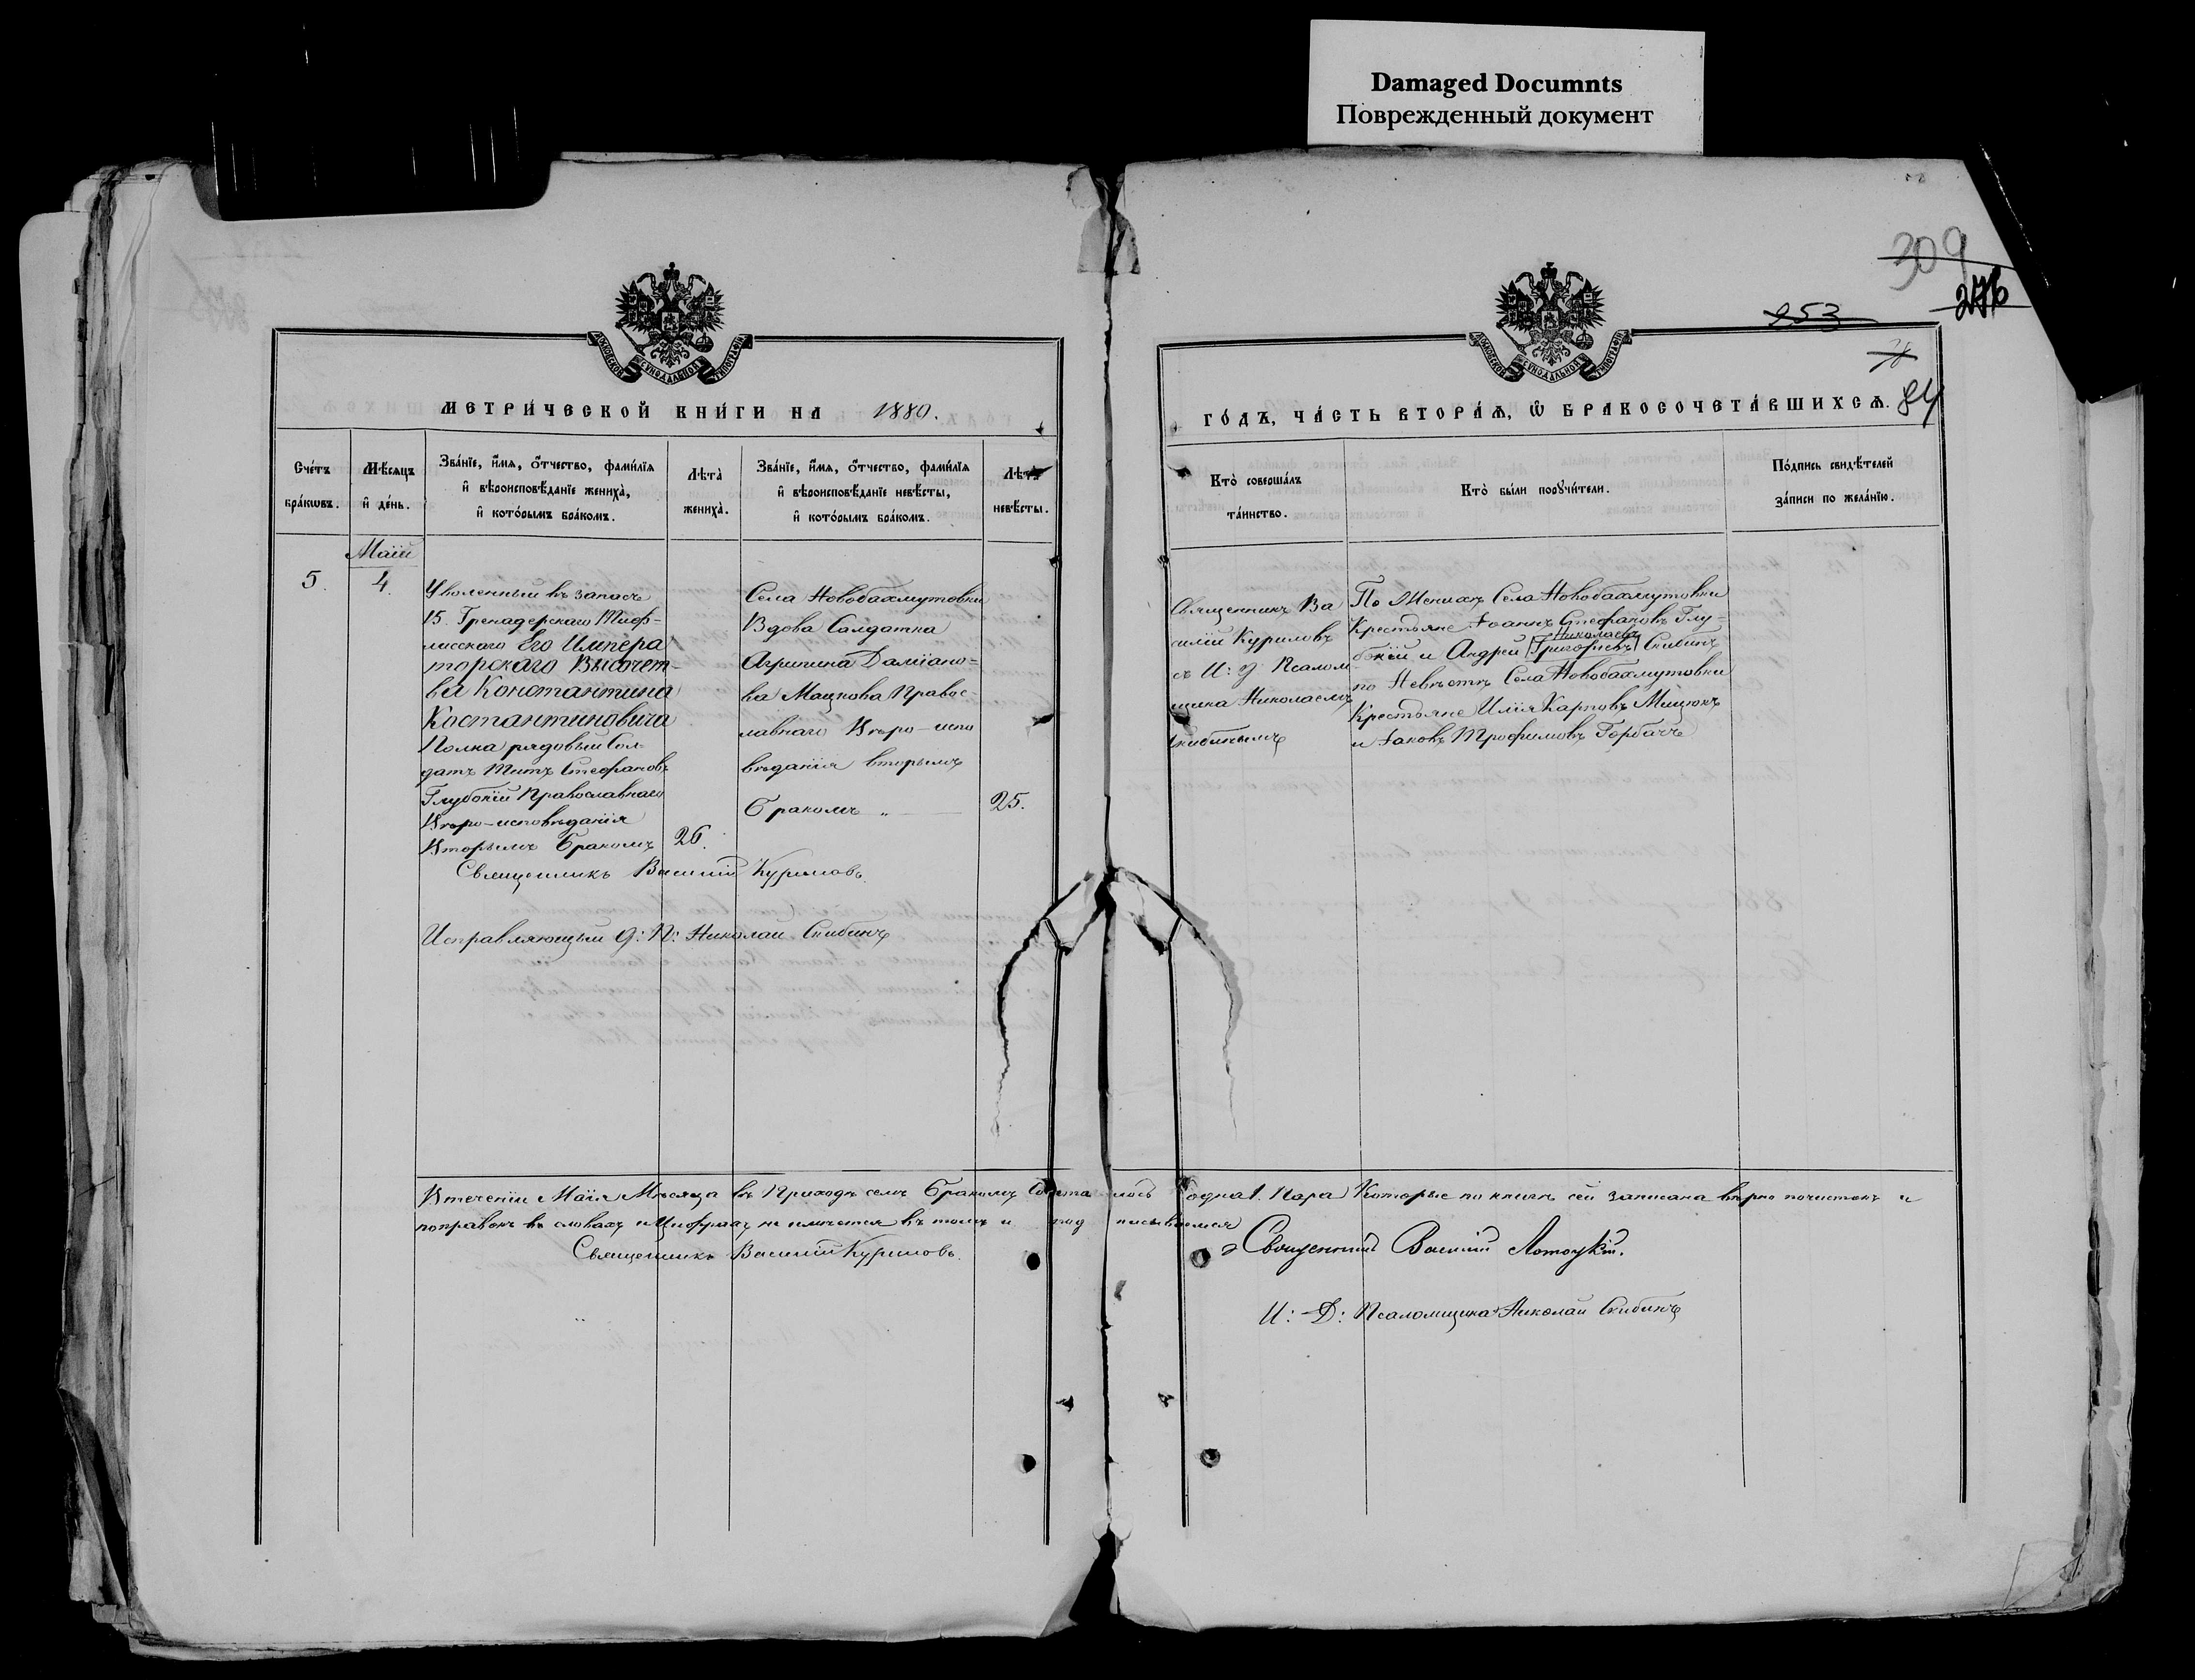 Damaged Documnts
Поврежденный документ
309
276
253
84
МОСКОВСКОЙ СѴНОДАЛЬНОЙ ТИПОГРАФІИ
МОСКОВСКОЙ СѴНОДАЛЬНОЙ ТИПОГРАФІИ
МЕТРИ́ЧЕСКОЙ КНИ́ГИ НА 1880.
ГО́ДЪ, ЧА́СТЬ ВТОРА́Ѧ, Ѽ БРАКОСОЧЕТА́ВШИХСѦ.
Сче́тъ бра́кѡвъ.
Мѣ́сяцъ и҆ де́нь.
Зва́нїе, и҆́мя, ѻ҆́тчество, фами́лїя и҆ вѣроисповѣ́данїе жениха̀, и҆ кото́рымъ бра́комъ.
Лѣ́та̀ жениха̀.
Зва́нїе, и҆́мя, ѻ҆́тчество, фами́лїя и҆ вѣроисповѣ́данїе невѣ́сты, и҆ кото́рымъ бра́комъ.
Лѣ́та̀ невѣ́сты.
Кто̀ соверша́лъ та́инство.
Кто̀ бы́ли порꙋчи́тели.
По́дпись свидѣ́телей за́писи по жела́нїю.
Маій
5.
4.
Уволенный въ запасъ
15. Гренадерскаго Тиф-
лисскаго Его Импера
торскаго Высочет-
ва Константина
Костантиновича
Полка рядовый Сол-
датъ Титъ Стефановъ
Глубокій Православнаго
Вѣро-исповѣданія
Вторымъ Бракомъ
26.
Села Новобахмутовки
Вдова Салдатка
Агрипина Даміано-
ва Мацкова Правос-
лавнаго Вѣро-испо
вѣданія вторымъ
Бракомъ „ —
25.
Священникъ Ва
силій Куриловъ
съ И: д: Псалом
щика Николаемъ
Скибинымъ
По Женихѣ Села Новобахмутовки
Крестьяне Іоаннъ Стефановъ Глу=
Николаевъ
бокій и Андрей [Григорьевъ] Скибинъ
по Невѣстѣ Села Новобахмутовки
Крестьяне Илія Карповъ Мицюкъ
и Іаковъ Трофимовъ Горбачъ
Священникъ Василій Куриловъ.
Исправляющій д: П: Николай Скибинъ
Втеченіи Маія Мѣсяца въ Приходѣ семъ Бракомъ лось одна 1. Пара Которые по книгѣ сей записана вѣрно почистокъ и
поправокъ въ словахъ и Цифрахъ не имеется въ томъ и под писываемся
Священникъ Василій Куриловъ.
Священникъ Василій
И: Д: Псаломщика Николай Скибинъ